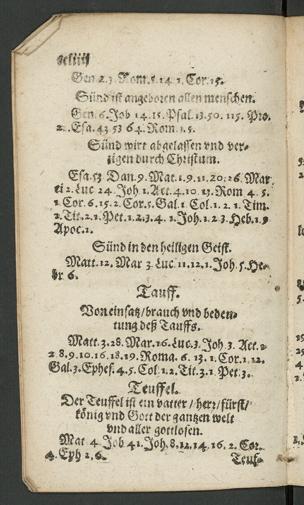 Gen. 2.3. Rom. 5.14. 1. Cor. 15.
Sünd ist angeboren allen menschen.
Gen. 6. Job 14. 15. Psal. 13. 50. 115. Pro.
2. Esa. 43 53 64. Rom. 1. 5.
Sünd wirt abgelassen vnd ver-
zigen durch Christum.
Esa. 53 Dan. 9. Mat. 1. 9. 11. 20. 26. Mar.
2. Luc 24. Joh 1. Act. 4. 10. 13. Rom 4. 5.
1 Cor. 6. 15. 2. Cor. 5. Gal. 1 Col. 1. 2. 1. Tim.
2. Tit. 2. 1. Pet. 1. 2. 3. 4. 1. Joh. 1. 2 3. Heb. 1. 9
Apoc. 1.
Sünd in den heiligen Geist.
Matt. 12. Mar 3. Luc. 11. 12. 1. Joh. 5. He-
br 6.
Tauff.
Von einsatz/ brauch vnd beden-
tung des Tauffs.
Matt. 3. 28. Mar. 16. Luc. 3. Joh 3. Act. 2.
8. 9. 10. 16. 18. 19. Roma. 6. 13. 1. Cor. 1. 12.
Gal. 3. Ephes. 4. 5. Col. 1. 2. Tit. 3. 1. Pet. 3.
Teuffel.
Der Teuffel ist ein vatter/ herr/ fürst/
könig vnd Gott der gantzen welt
vnd aller gottlosen.
Mat 4. Job 41. Joh. 8. 12. 14. 16. 2. Cor.
4. Eph 2. 6.
Teuf-